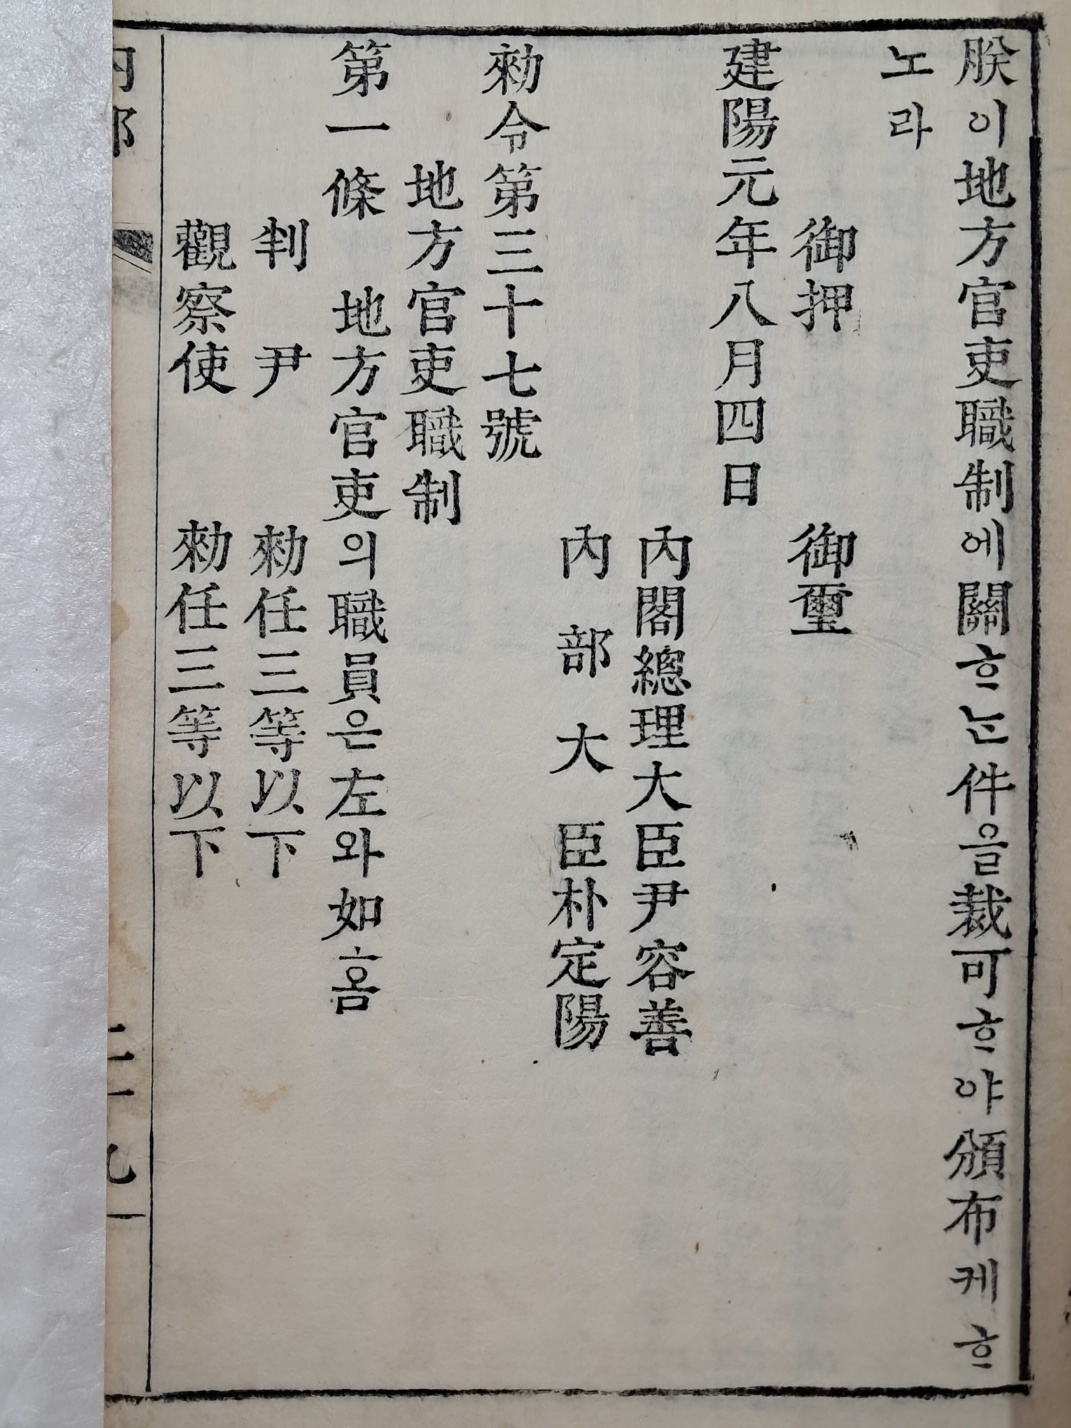 朕이地方官吏職制에關ᄒᆞᄂᆞᆫ件을裁可ᄒᆞ야頒布케ᄒᆞ
노라
御押 御璽
建陽元年八月四日
內閣總理大臣尹容善
內部大臣朴定陽
勅令第三十七號
地方官吏職制
第一條 地方官吏의職員은左와如홈
判尹 勅任三等以下
觀察使 勅任三等以下